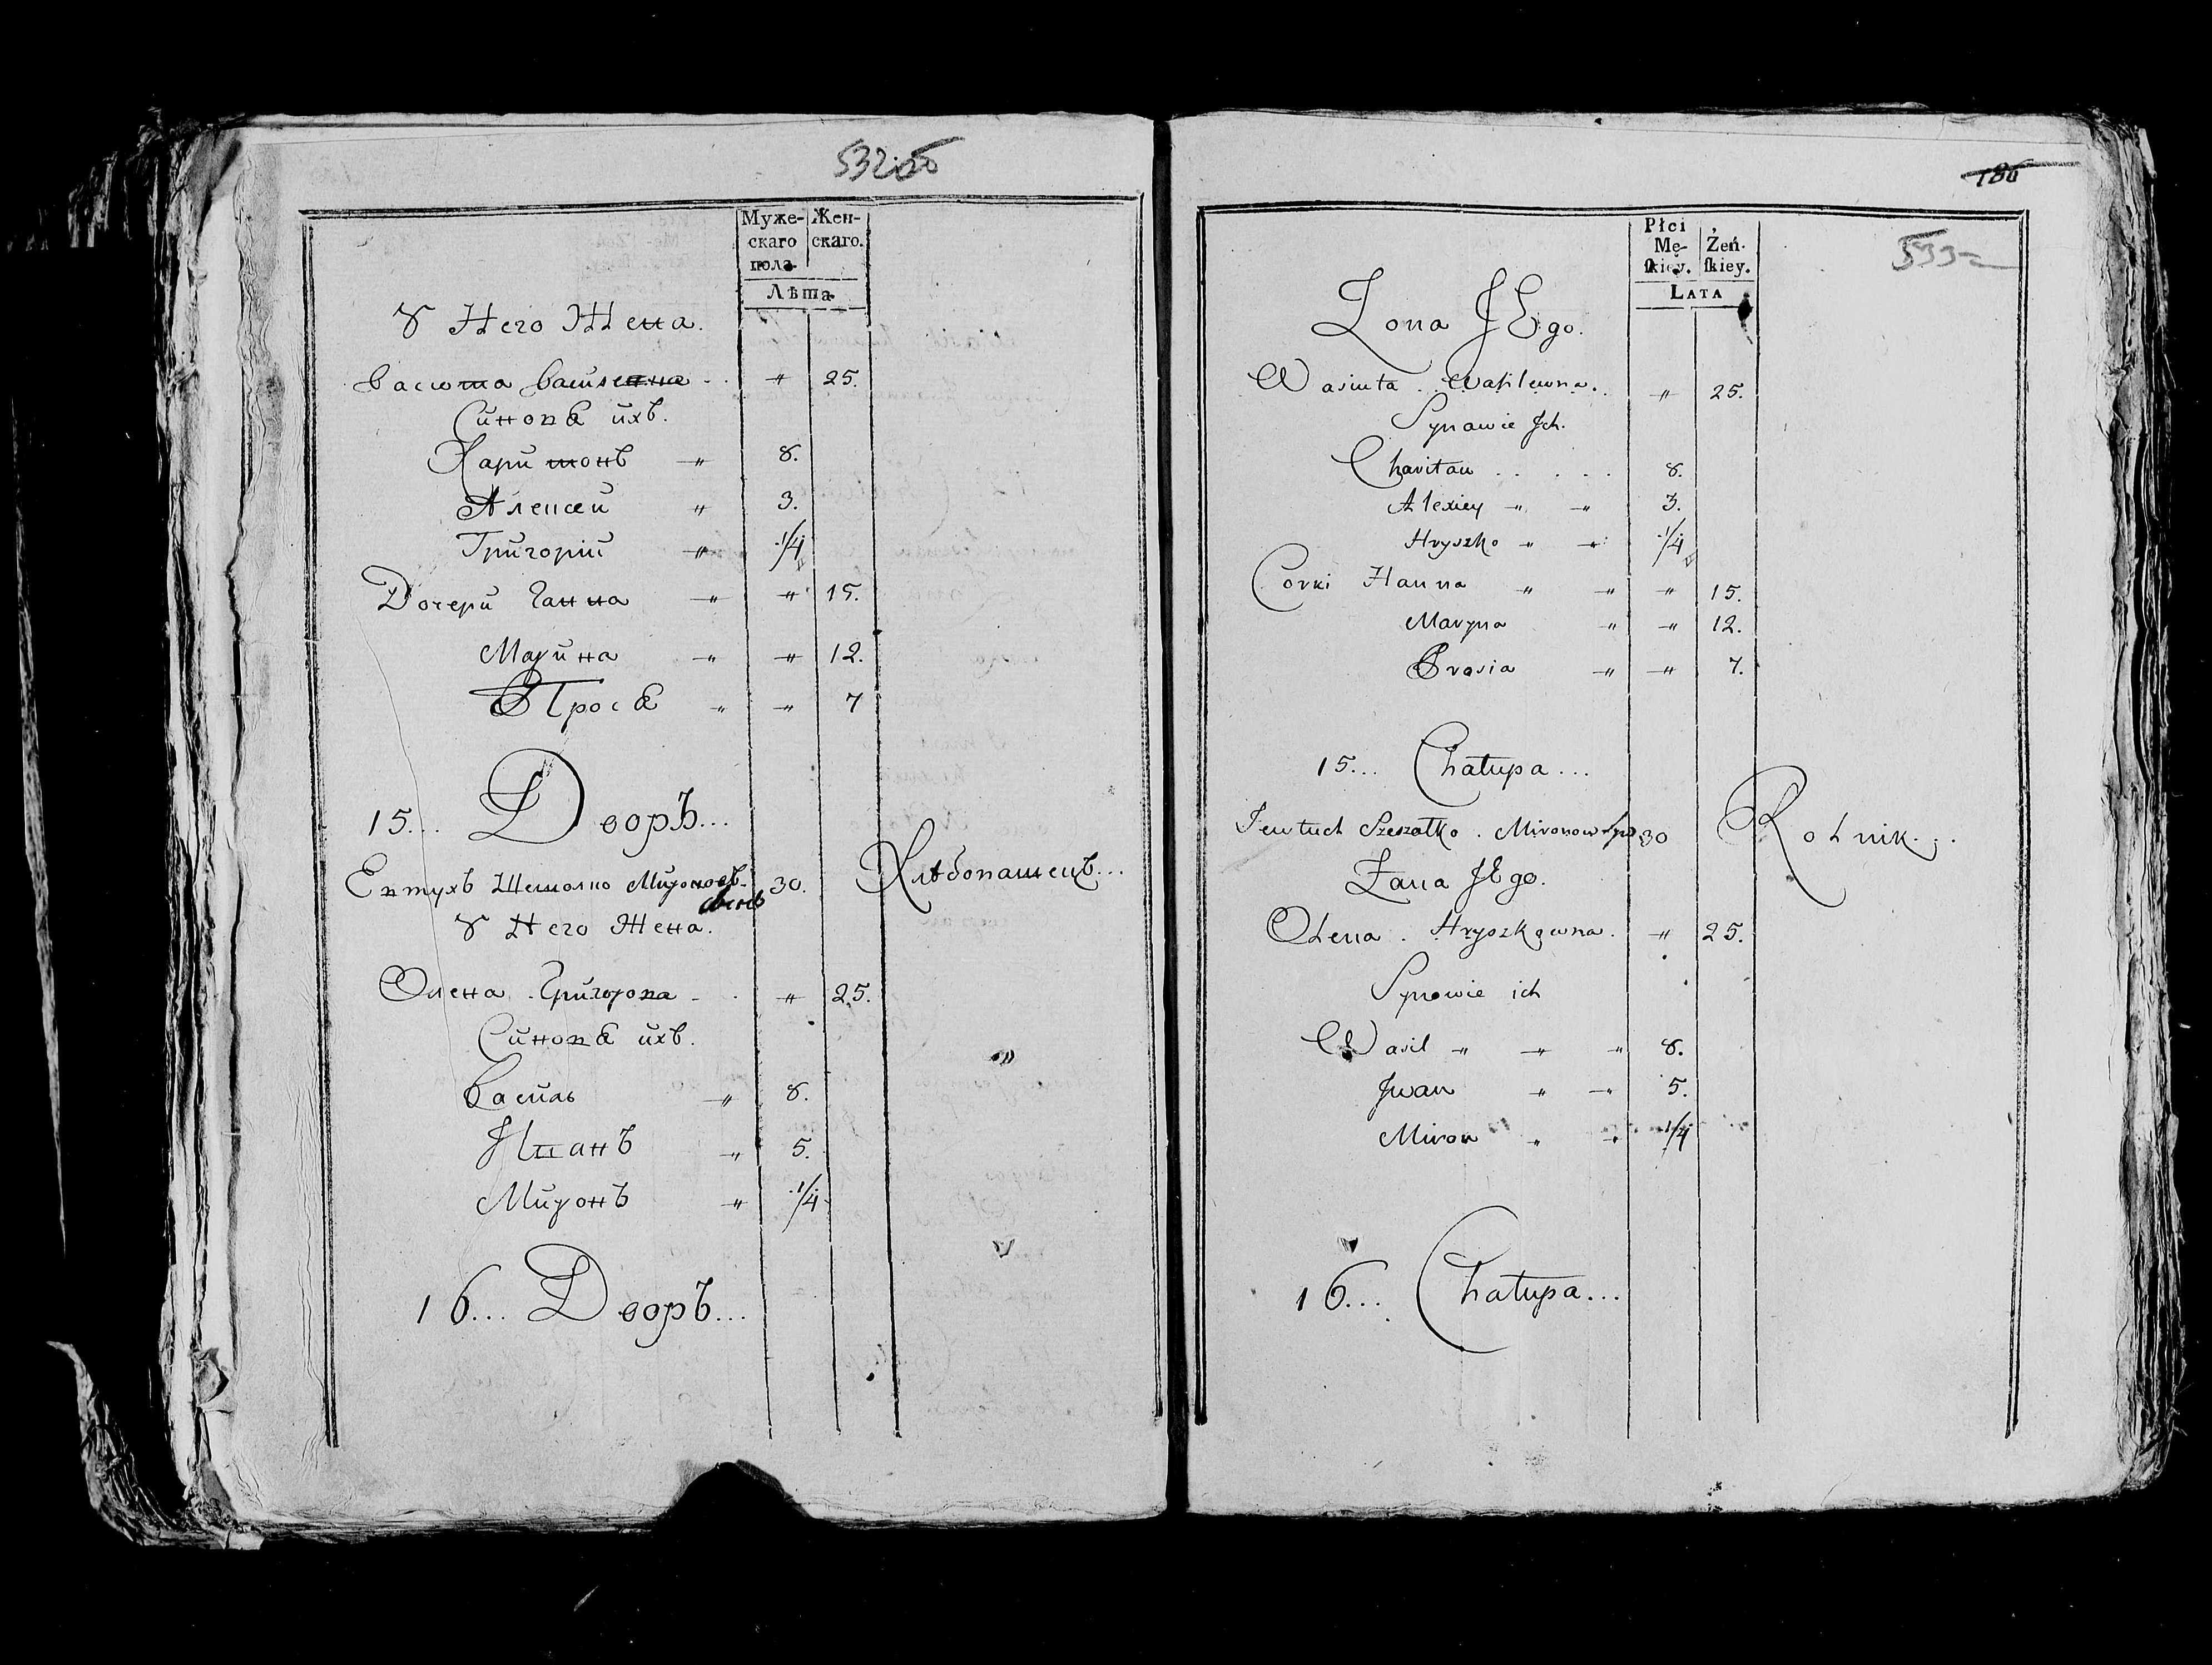 532об
Муже-
скаго
пола.
Жен-
скаго.
Лѣта
У Него Жена.
Васюта Васильевна " 25.
СиновѢ ихъ.
Харитонъ " 8.
Алексей " 3.
Григорій " 1/4
Дочери Ганна " " 15.
Марина " " 12.
Прося " " 7
15... Дворъ...
Евтухъ Шешолко Мироновъ 30. Хлѣбопашецъ...
сынъ
У Него Жена.
Олена . Григорова " 25.
СиновѢ ихъ.
Василь " 8.
Иванъ " 5.
Миронъ " 1/4
16... Дворъ...
186
533
Płci
Mę-
ſkiey.
Żeń-
ſkiey.
LATA
Zona JEgo.
Wasiuta . Wasilewna. " 25.
Synowie Jch.
Chariton . . . . . 8.
Alexiey " " 3.
Hryszko " " 1/4
Corki Hanna " " " 15.
Maryna " " 12.
Prosia " " 7.
15... Chałupa...
Jewtuch Szeszołko . Mironow syn 30 Rolnik...
Zona JEgo.
Olena . Hryszkowna . " 25.
Synowie ich
Wasil " " " 8.
Jwan " " 5.
Miron " " 1/4
16... Chałupa...